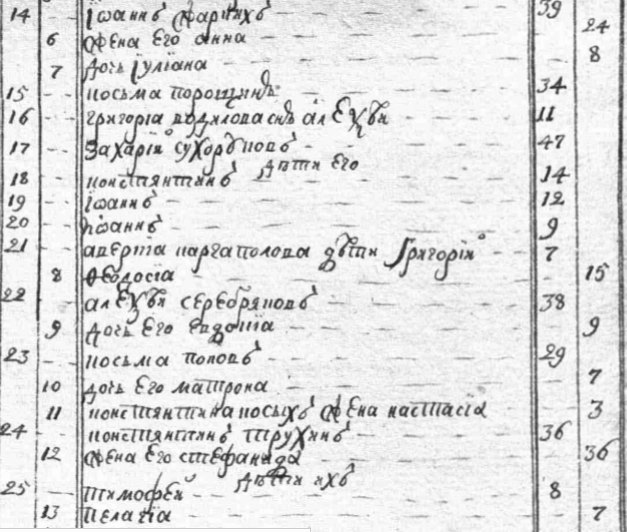 14 Іѡаннъ 39
24
6 жена Его анна
8
7 дочь іуліана
15 косьма порошинъ 34
16 григорія снъ алеѯѣй 11
17 Захарій сухоруковъ 47
дѣти Его
18 константинъ 14
19 Іѡаннъ 12
20 Іѡаннъ 9
21 аверкіа каргаполова дѣти Григорій 7
8 Ѳеодосіа 15
22 алеѯѣй серебряковъ 38
9 дочь Его евдокіа 9
23 косьма поповъ 29
10 дочь Его матрона 7
11 константина косыхъ жена настасіа 3
24 константинъ трухинъ 36
12 жена Его стефанида 36
дѣти ихъ
25 тимофей 8
13 пелагіа 7